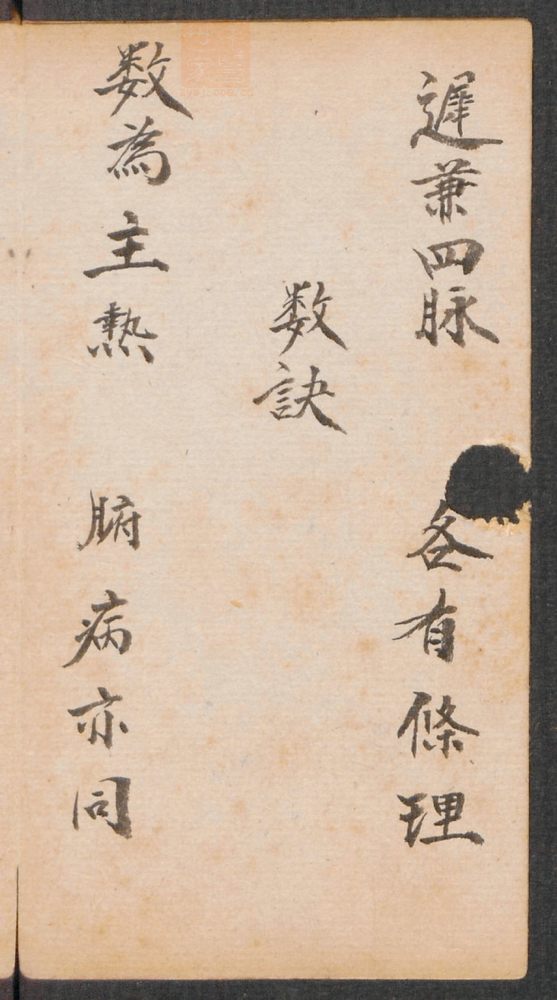 遲兼四脉 各有條理
数訣
数為主熱 腑病亦同